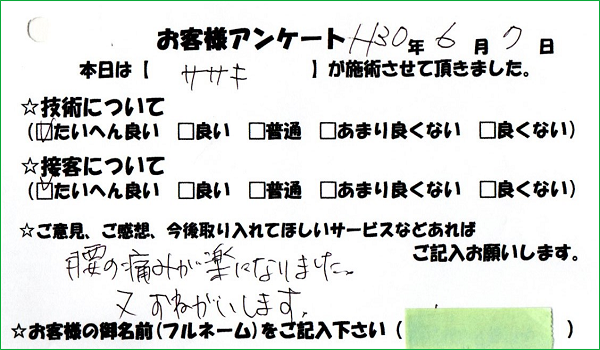 お客様アンケート H30年 6月 7日
本日は【 ササキ 】が施術させて頂きました。
☆技術について
(☑たいへん良い □良い □普通 □あまり良くない □良くない)
☆接客について
(☑たいへん良い □良い □普通 □あまり良くない □良くない)
☆ご意見、ご感想、今後取り入れてほしいサービスなどあれば
ご記入お願いします。
腰の痛みが楽になりました。
又おねがいします。
☆お客様の御名前(フルネーム)をご記入下さい( )